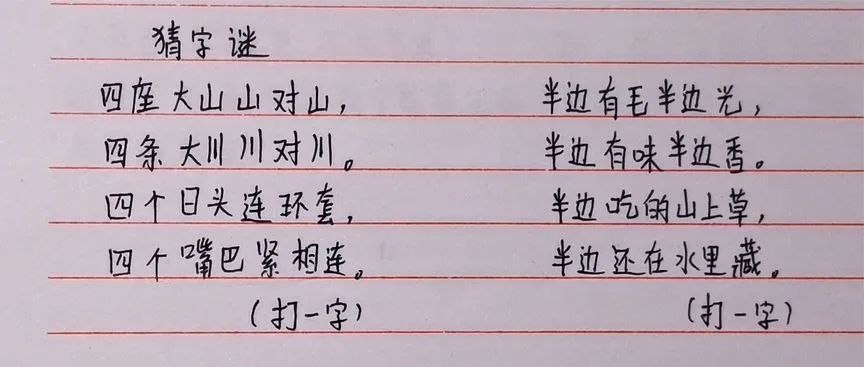 猜字谜
四座大山山对山，
四条大川川对川。
四个日头连环套，
四个嘴巴紧相连。
（打一字）
半边有毛半边光，
半边有味半边香。
半边吃的山上草，
半边还在水里藏。
（打一字）